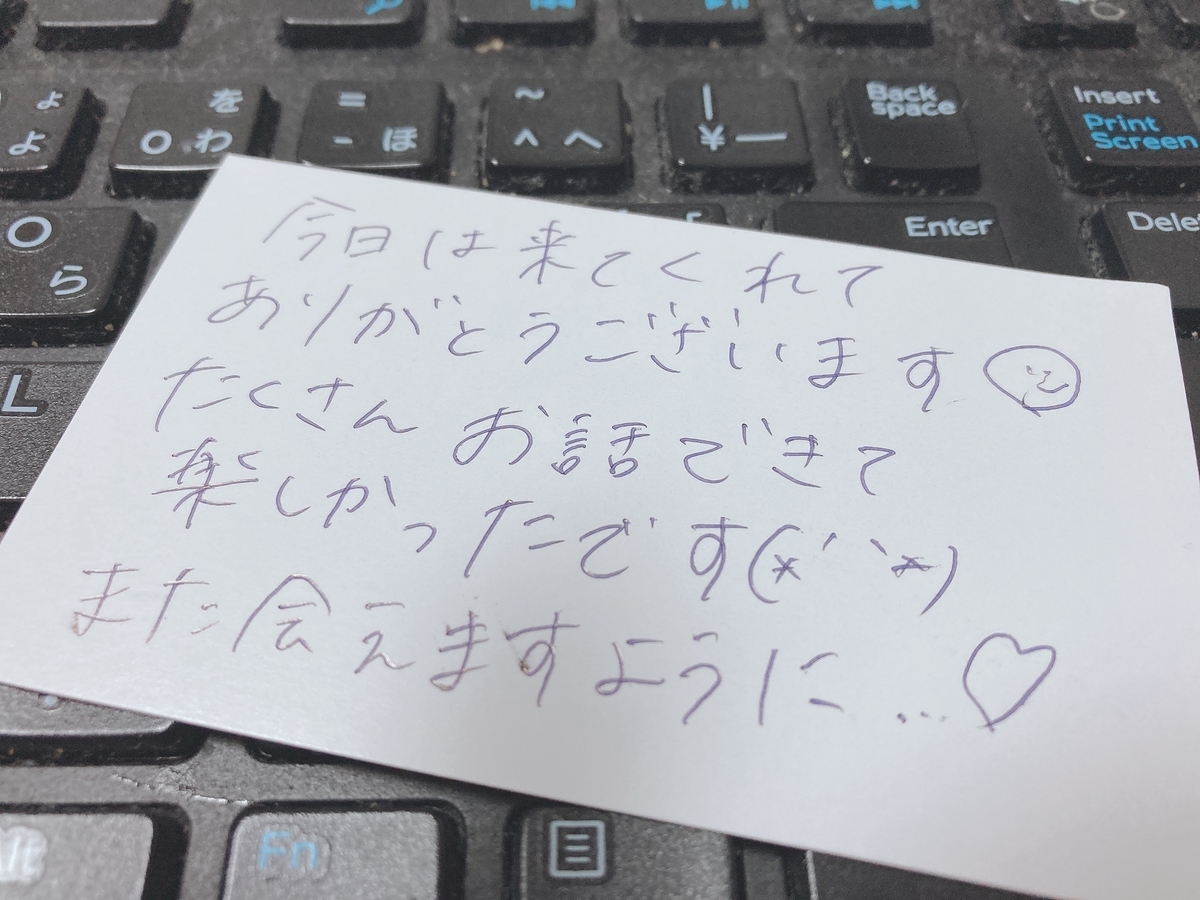 ょ
よ
を
0 わ
=
- ほ
~
^ へ
|
¥ ー
Back
space
Insert
Print
Screen
O
ら
Enter
Dele
L
今日は来てくれて
ありがとうございます
たくさんお話できて
楽しかったです(*´`*)
また会えますように…♡
Alt
Fn